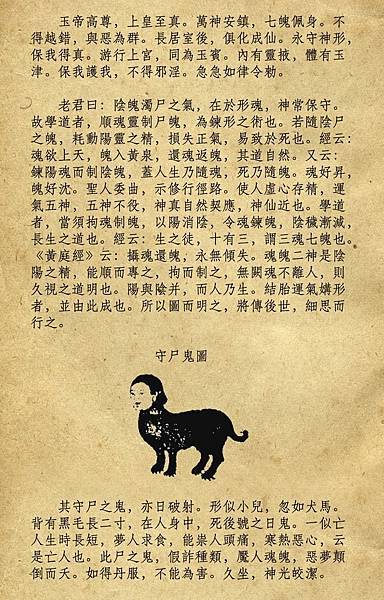 玉帝高尊，上皇至真。萬神安鎮，七魄佩身。不
得越錯，與惡為群。長居室後，俱化成仙。永守神形，
保我得真。游行上宮，同為玉賓。內有靈掖，體有玉
津。保我護我，不得邪淫。急急如律令勅。
老君曰：陰魄濁尸之氣，在於形魂，神常保守。
故學道者，順魂靈制尸魄，為鍊形之術也。若隨陰尸
之魄，耗動陽靈之精，損失正氣，易致於死也。經云：
魂欲上天，魄入黃泉，還魂返魄，其道自然。又云：
鍊陽魂而制陰魄，蓋人生乃隨魂，死乃隨魄。魂好昇，
魄好沈。聖人委曲，示修行徑路。使人虛心存精，運
氣五神，五神不役，神真自然契應，神仙近也。學道
者，當須拘魂制魄，以陽消陰，令魂鍊魄，陰穢漸滅，
長生之道也。經云：生之徒，十有三，謂三魂七魄也。
《黃庭經》云：攝魂還魄，永無傾失。魂魄二神是陰
陽之精，能順而專之，拘而制之，無闕魂不離人，則
久視之道明也。陽與陰并，而人乃生。結胎運氣媾形
者，並由此成也。所以圖而明之，將傳後世，細思而
行之。
守尸鬼圖
其守尸之鬼，亦日破射。形似小兒，忽如犬馬。
背有黑毛長二寸，在人身中，死後號之日鬼。一似亡
人生時長短，夢人求食，能祟人頭痛，寒熱惡心，云
是亡人也。此尸之鬼，假詐種類，魘人魂魄，惡夢顛
倒而夭。如得丹服，不能為害。久坐，神光皎潔。